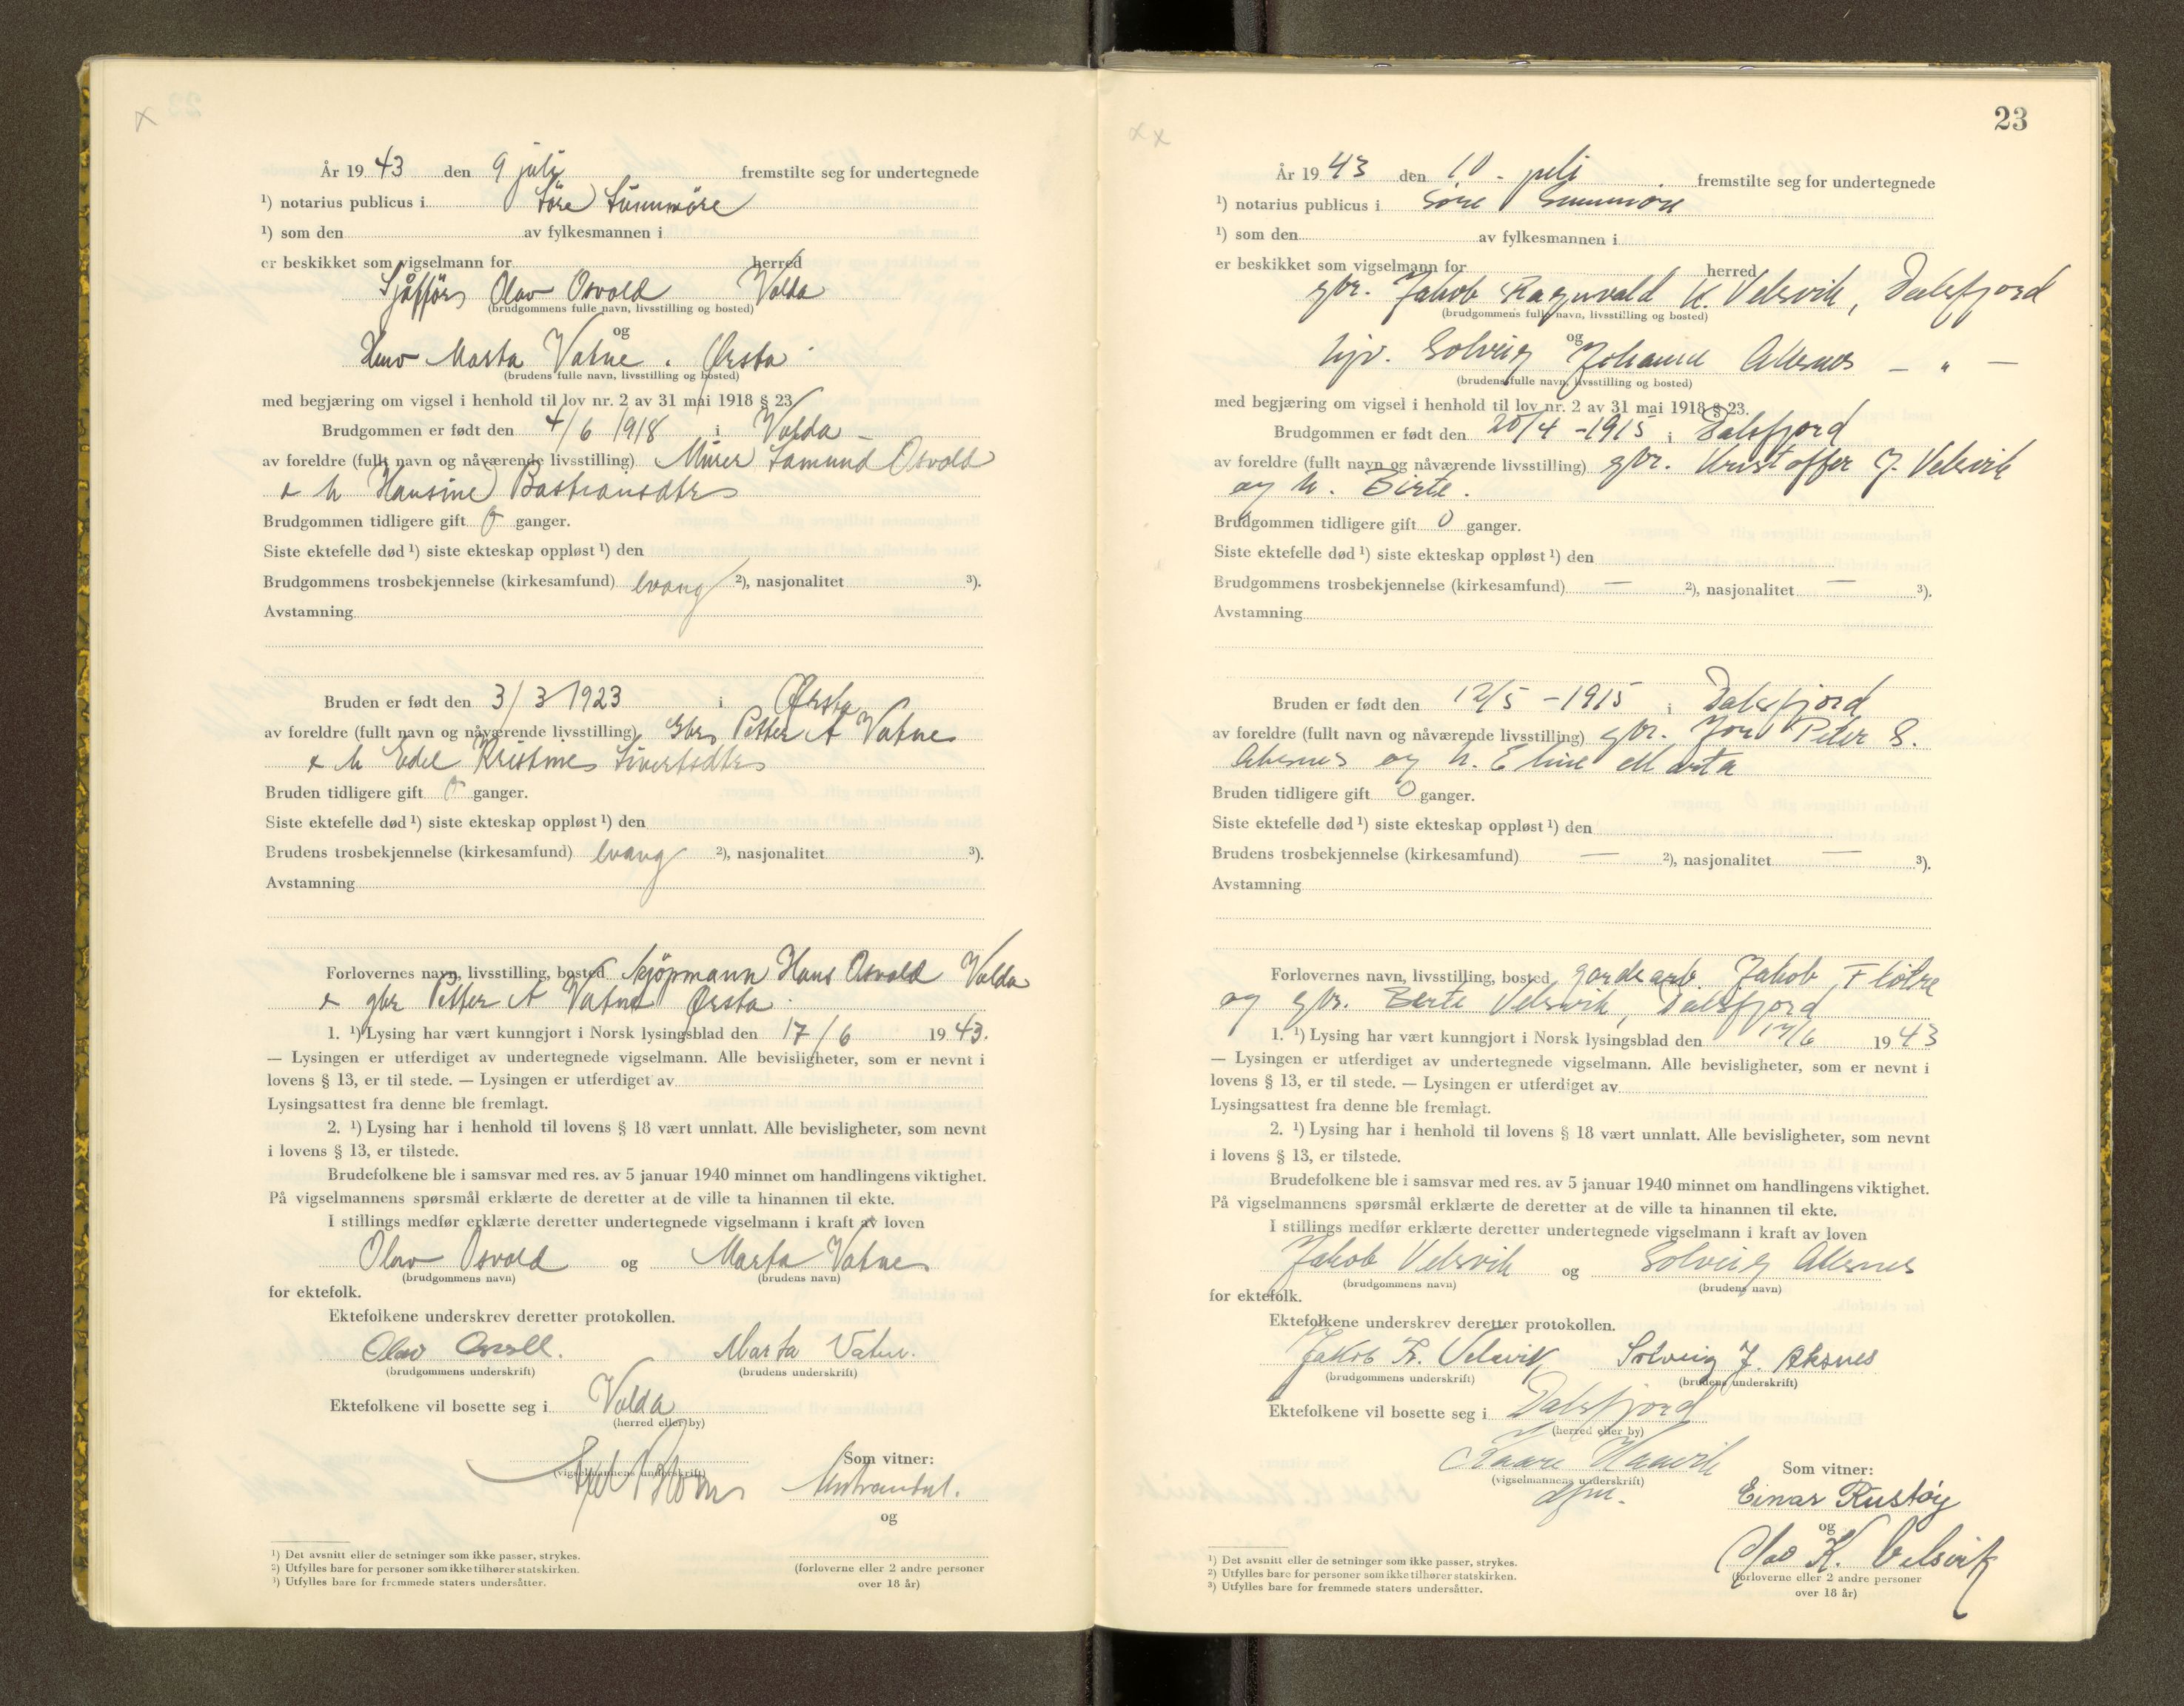 År 19 43 den 9 juli fremstilte seg for undertegnede
¹) notarius publicus i Søre Sunnmøre
¹) som den av fylkesmannen i
er beskikket som vigselmann for herred
Sjåffør Olav Osvold Volda
(brudgommens fulle navn, livsstilling og bosted)
og
Marta Vatne. Ørsta
(brudens fulle navn, livsstilling og bosted)
med begjæring om vigsel i henhold til lov nr. 2 av 31 mai 1918 § 23
Brudgommen er født den 4/6 1918 i Volda
av foreldre (fullt navn og nåværende livsstilling) Murer Samund Osvold
& h Hansine Bastiansdtr
Brudgommen tidligere gift 0 ganger.
Siste ektefelle død ¹) siste ekteskap oppløst ¹) den
Brudgommens trosbekjennelse (kirkesamfund) evang ²), nasjonalitet ³).
Avstamning
Bruden er født den 3/3 1923 i Ørsta
av foreldre (fullt navn og nåværende livsstilling) Gbr Petter A Vatne
& h Edel Kristine Sivertsdtr
Bruden tidligere gift 0 ganger.
Siste ektefelle død ¹) siste ekteskap oppløst ¹) den
Brudens trosbekjennelse (kirkesamfund) evang ²), nasjonalitet ³).
Avstamning
Forlovernes navn, livsstilling, bosted kjøpmann Hans Osvold Volda
& gbr Petter A Vatne Ørsta.
1. ¹) Lysing har vært kunngjort i Norsk lysingsblad den 17/6 19 43.
— Lysingen er utferdiget av undertegnede vigselmann. Alle bevisligheter, som er nevnt i
lovens § 13, er til stede. — Lysingen er utferdiget av
Lysingsattest fra denne ble fremlagt.
2. ¹) Lysing har i henhold til lovens § 18 vært unnlatt. Alle bevisligheter, som nevnt
i lovens § 13, er tilstede.
Brudefolkene ble i samsvar med res. av 5 januar 1940 minnet om handlingens viktighet.
På vigselmannens spørsmål erklærte de deretter at de ville ta hinannen til ekte.
I stillings medfør erklærte deretter undertegnede vigselmann i kraft av loven
Olav Osvold og Marta Vatne
(brudgommens navn) (brudens navn)
for ektefolk.
Ektefolkene underskrev deretter protokollen.
Olav Osvoll. Marta Vatne.
(brudgommens underskrift) (brudens underskrift)
Ektefolkene vil bosette seg i Volda
(herred eller by)
Som vitner:
(vigselmannens underskrift)
og
¹) Det avsnitt eller de setninger som ikke passer, strykes.
²) Utfylles bare for personer som ikke tilhører statskirken.
³) Utfylles bare for fremmede staters undersåtter.
(forloverne eller 2 andre personer
over 18 år)
23
År 19 43 den 10 - juli fremstilte seg for undertegnede
¹) notarius publicus i Søre Sunnmøre
¹) som den av fylkesmannen i
er beskikket som vigselmann for herred
gbr. Jakob Ragnvald K. Velsvik, Dalsfjord
(brudgommens fulle navn, livsstilling og bosted)
og
hjv. Solveig Johanne Aksnes — " —
(brudens fulle navn, livsstilling og bosted)
med begjæring om vigsel i henhold til lov nr. 2 av 31 mai 1918 § 23.
Brudgommen er født den 20/4 - 1915 i Dalsfjord
av foreldre (fullt navn og nåværende livsstilling) gbr. Kristoffer J. Velsvik
og h. Birte.
Brudgommen tidligere gift 0 ganger.
Siste ektefelle død ¹) siste ekteskap oppløst ¹) den
Brudgommens trosbekjennelse (kirkesamfund) — ²), nasjonalitet — ³).
Avstamning
Bruden er født den 12/5 - 1915 i Dalsfjord
av foreldre (fullt navn og nåværende livsstilling) gbr. Jon Peter S.
Aksnes og h. Eline Marta
Bruden tidligere gift 0 ganger.
Siste ektefelle død ¹) siste ekteskap oppløst ¹) den
Brudens trosbekjennelse (kirkesamfund) — ²), nasjonalitet — ³).
Avstamning
Forlovernes navn, livsstilling, bosted gardsarb. Jakob Fløtre
og gbr. Berte Velsvik, Dalsfjord
1. ¹) Lysing har vært kunngjort i Norsk lysingsblad den 17/6 19 43
— Lysingen er utferdiget av undertegnede vigselmann. Alle bevisligheter, som er nevnt i
lovens § 13, er til stede. — Lysingen er utferdiget av
Lysingsattest fra denne ble fremlagt.
2. ¹) Lysing har i henhold til lovens § 18 vært unnlatt. Alle bevisligheter, som nevnt
i lovens § 13, er tilstede.
Brudefolkene ble i samsvar med res. av 5 januar 1940 minnet om handlingens viktighet.
På vigselmannens spørsmål erklærte de deretter at de ville ta hinannen til ekte.
I stillings medfør erklærte deretter undertegnede vigselmann i kraft av loven
Jakob Velsvik og Solveig Aksnes
(brudgommens navn) (brudens navn)
for ektefolk.
Ektefolkene underskrev deretter protokollen.
Jakob K. Velsvik Solveig J. Aksnes
(brudgommens underskrift) (brudens underskrift)
Ektefolkene vil bosette seg i Dalsfjord
(herred eller by)
Kaare Haavik Som vitner:
(vigselmannens underskrift)
dfm. Einar Rustøy
og
Olav K. Velsvik
¹) Det avsnitt eller de setninger som ikke passer, strykes.
²) Utfylles bare for personer som ikke tilhører statskirken.
³) Utfylles bare for fremmede staters undersåtter.
(forloverne eller 2 andre personer
over 18 år)